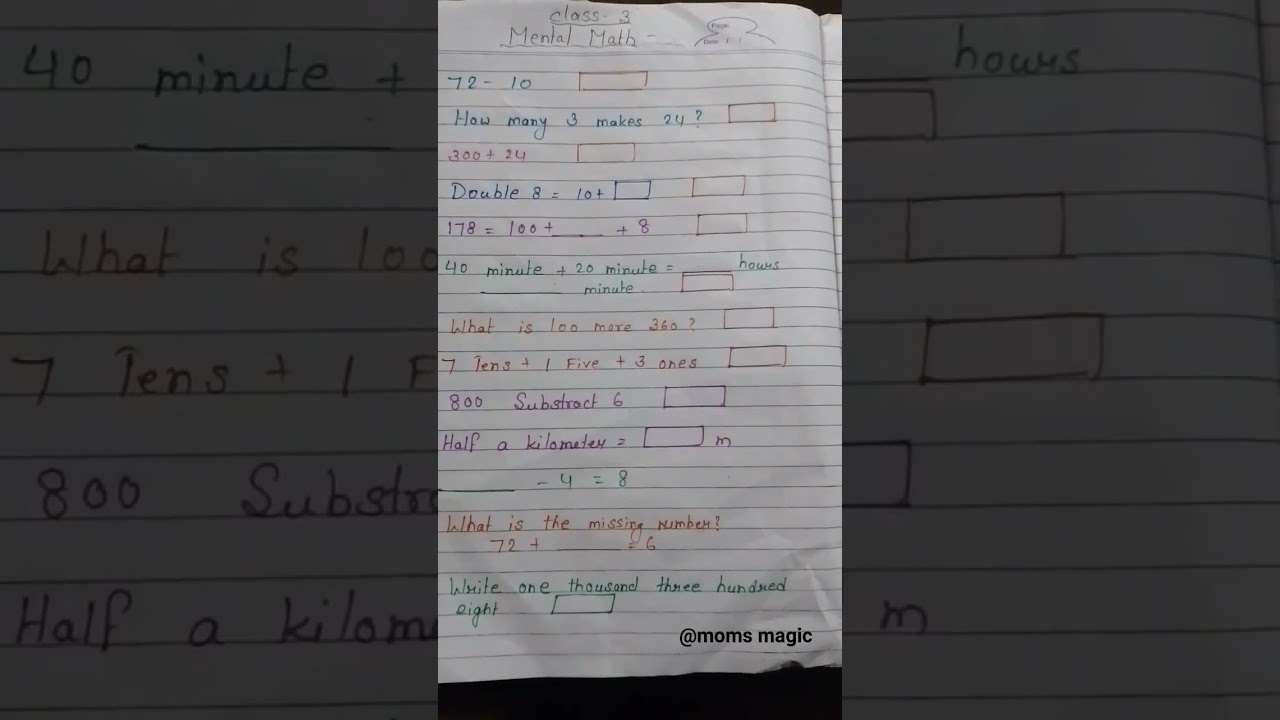 class. 3
Mental Math -
Page:
Date:
72 - 10
How many 3 makes 24?
300 + 24
Double 8 = 10+
178 = 100 + ____ + 8
40 minute + 20 minute = ____ hours
____ minute
What is 100 more 360?
7 Tens + 1 Five + 3 ones
800 Substract 6
Half a kilometer = m
____ - 4 = 8
What is the missing number?
72 + ____ = 6
Write one thousand three hundred
eight
@moms magic
40 minute +
hours
What is 100
7 Tens + 1 F
800 Substra
Half a kilome
m